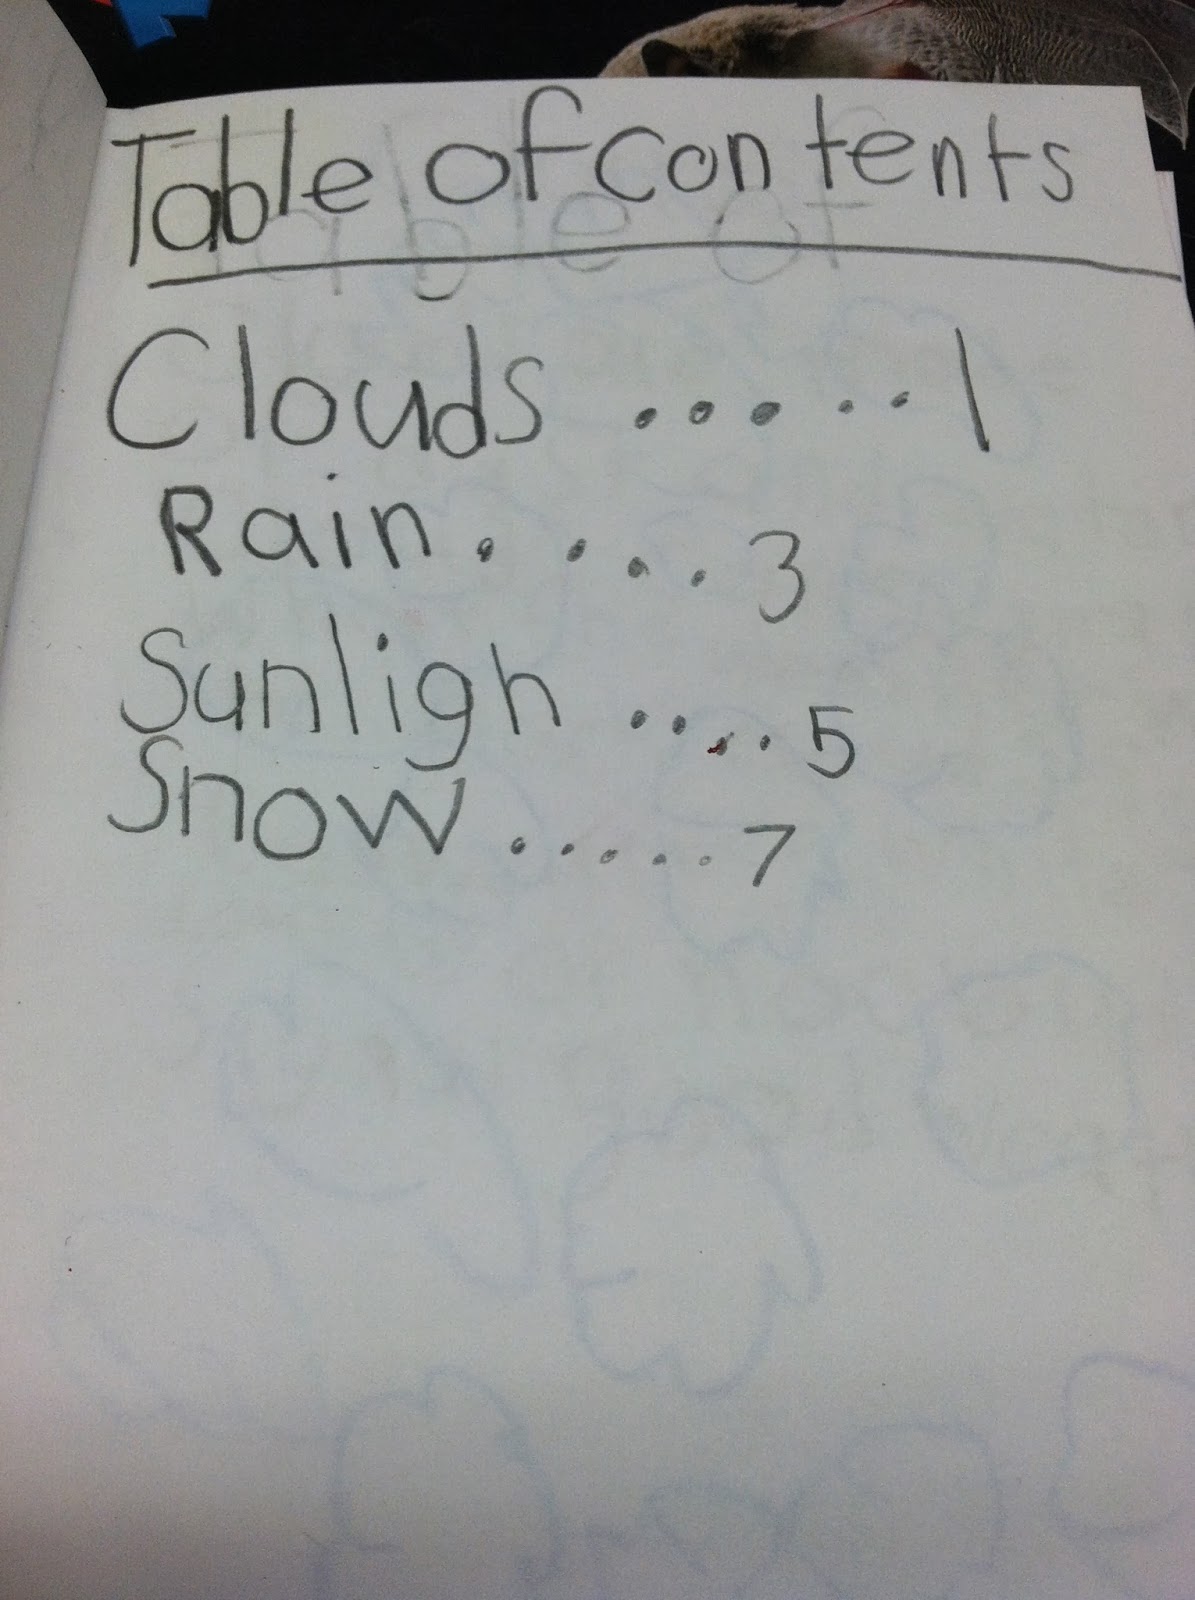 Table of contents
Clouds ..... 1
Rain .... 3
Sunligh .... 5
Snow ..... 7